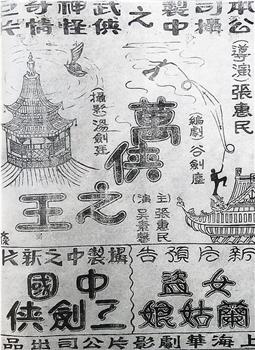 本公司攝製中之武俠神怪奇情巨片
(導演)張惠民
編劇 谷劍塵
萬俠之王
(攝影)湯劍廷
主演 張惠民 吳素馨
新片預告
女盜
蘭姑娘
攝製中之新片
中國
劍俠
上海華劇影片公司出品